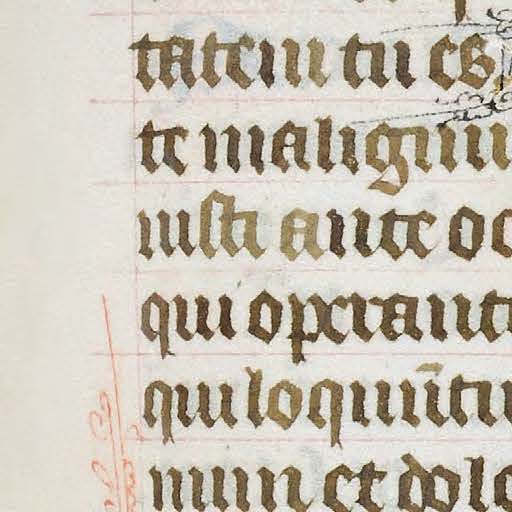 tatem tu es
te malignu
iusti ante oc
qui operant
qui loquūtu
num et dolo